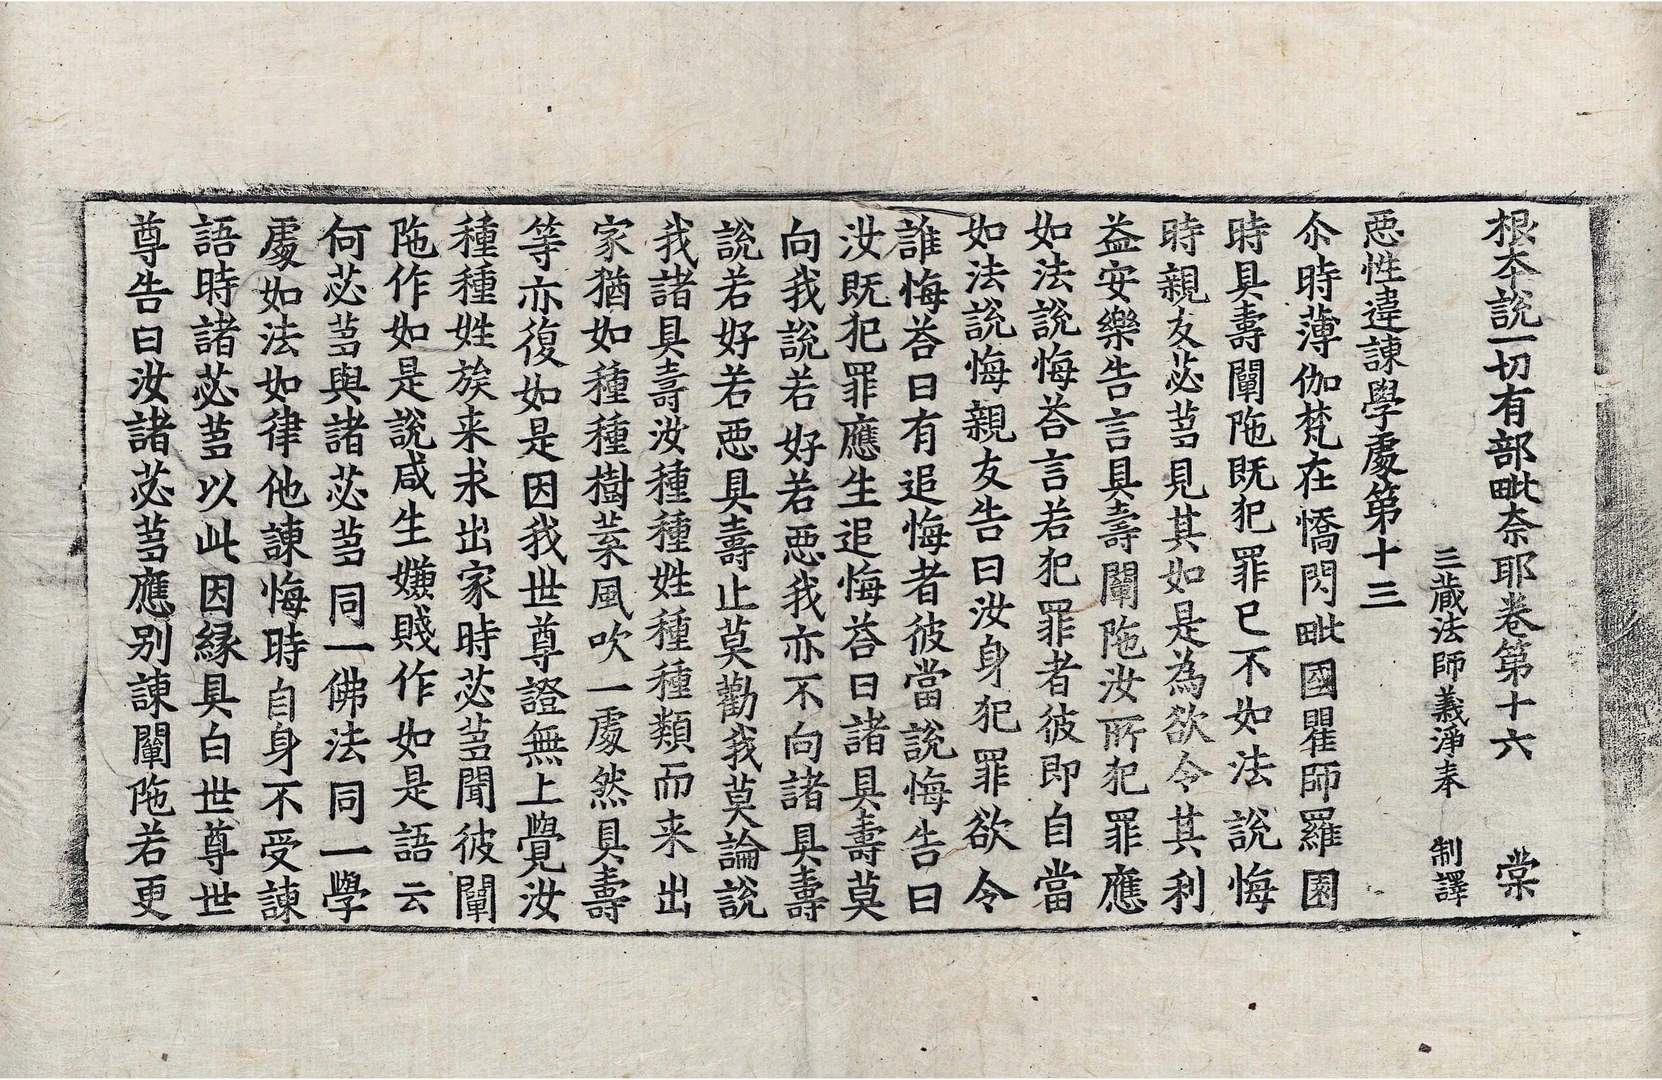 根本說一切有部毗奈耶卷第十六 棠
三藏法師義淨奉 制譯
惡性違諫學處第十三
尒時薄伽梵在憍閃毗國瞿師羅園
時具壽闡陁既犯罪已不如法說悔
時親友苾蒭見其如是為欲令其利
益安樂告言具壽闡陁汝所犯罪應
如法說悔荅言若犯罪者彼即自當
如法說悔親友告曰汝身犯罪欲令
誰悔荅曰有追悔者彼當說悔告曰
汝既犯罪應生追悔荅曰諸具壽莫
向我說若好若惡我亦不向諸具壽
說若好若惡具壽止莫勸我莫論說
我諸具壽汝種種姓種種類而来出
家猶如種種樹葉風吹一處然具壽
等亦復如是因我世尊證無上覺汝
種種姓族来求出家時苾蒭聞彼闡
陁作如是說咸生嫌賤作如是語云
何苾蒭與諸苾蒭同一佛法同一學
處如法如律他諫悔時自身不受諫
語時諸苾蒭以此因緣具白世尊世
尊告曰汝諸苾蒭應別諫闡陁若更